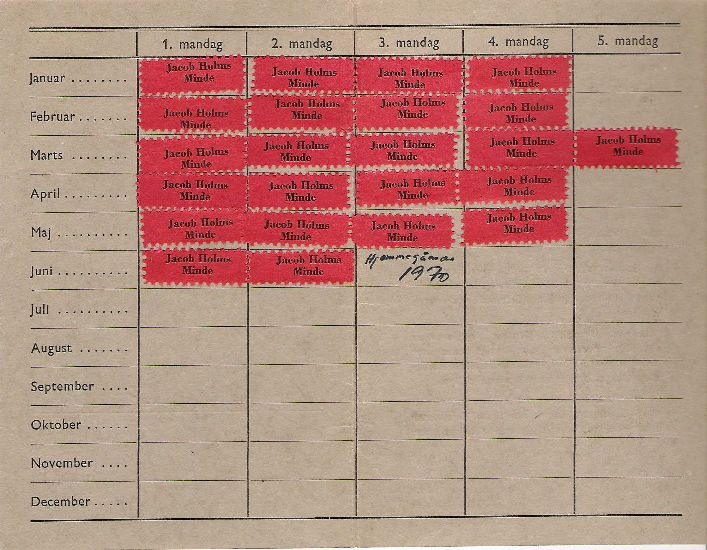 1. mandag 2. mandag 3. mandag 4. mandag 5. mandag
Januar ........ Jacob Holms Minde Jacob Holms Minde Jacob Holms Minde Jacob Holms Minde
Februar ....... Jacob Holms Minde Jacob Holms Minde Jacob Holms Minde Jacob Holms Minde
Marts ........ Jacob Holms Minde Jacob Holms Minde Jacob Holms Minde Jacob Holms Minde Jacob Holms Minde
April ......... Jacob Holms Minde Jacob Holms Minde Jacob Holms Minde Jacob Holms Minde
Maj .......... Jacob Holms Minde Jacob Holms Minde Jacob Holms Minde Jacob Holms Minde
Juni .......... Jacob Holms Minde Jacob Holms Minde 1970
Juli ...........
August .......
September ....
Oktober ......
November ....
December .....